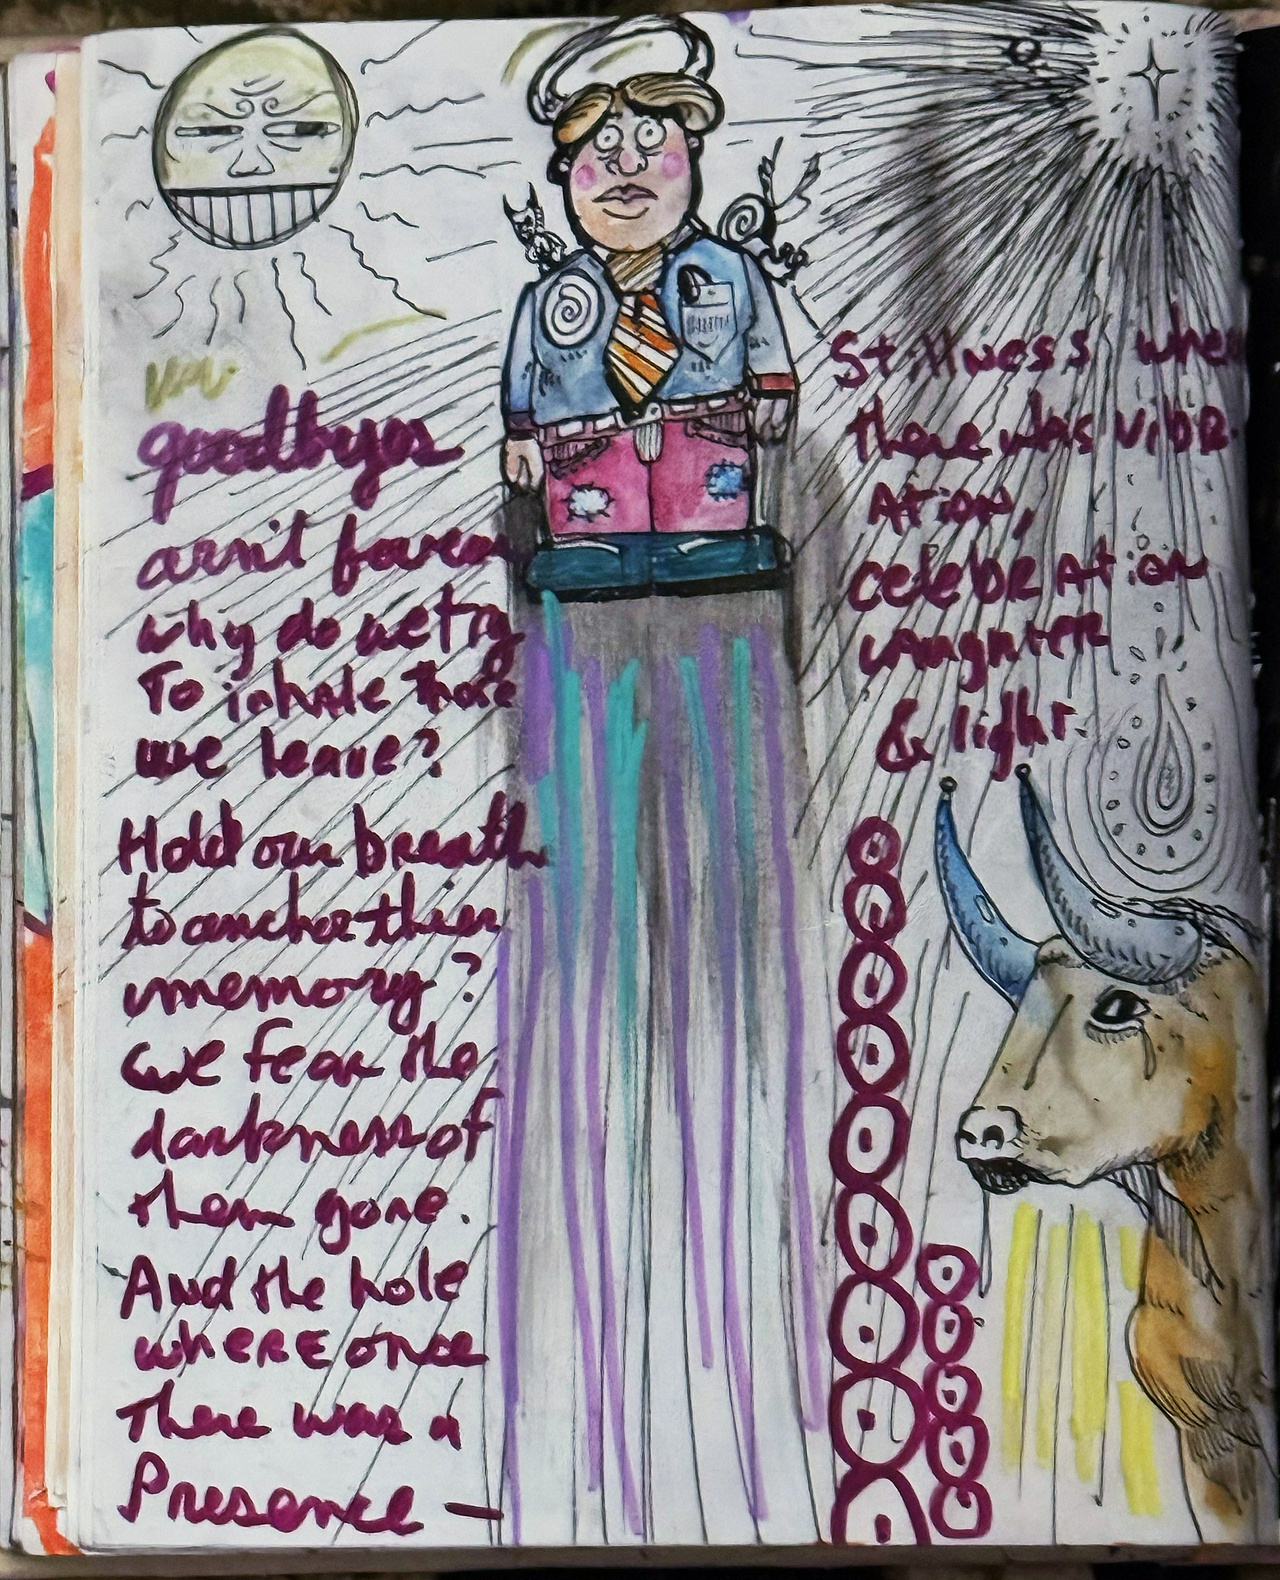 goodbyes
arn't forever
why do we try
To inhale those
we leave?
Hold our breath
to anchor thier
memory?
we fear the
darkness of
them gone.
And the hole
where once
There was a
Presence —
Stillness when
there was vibr
ation,
celebration
laughter
& light.